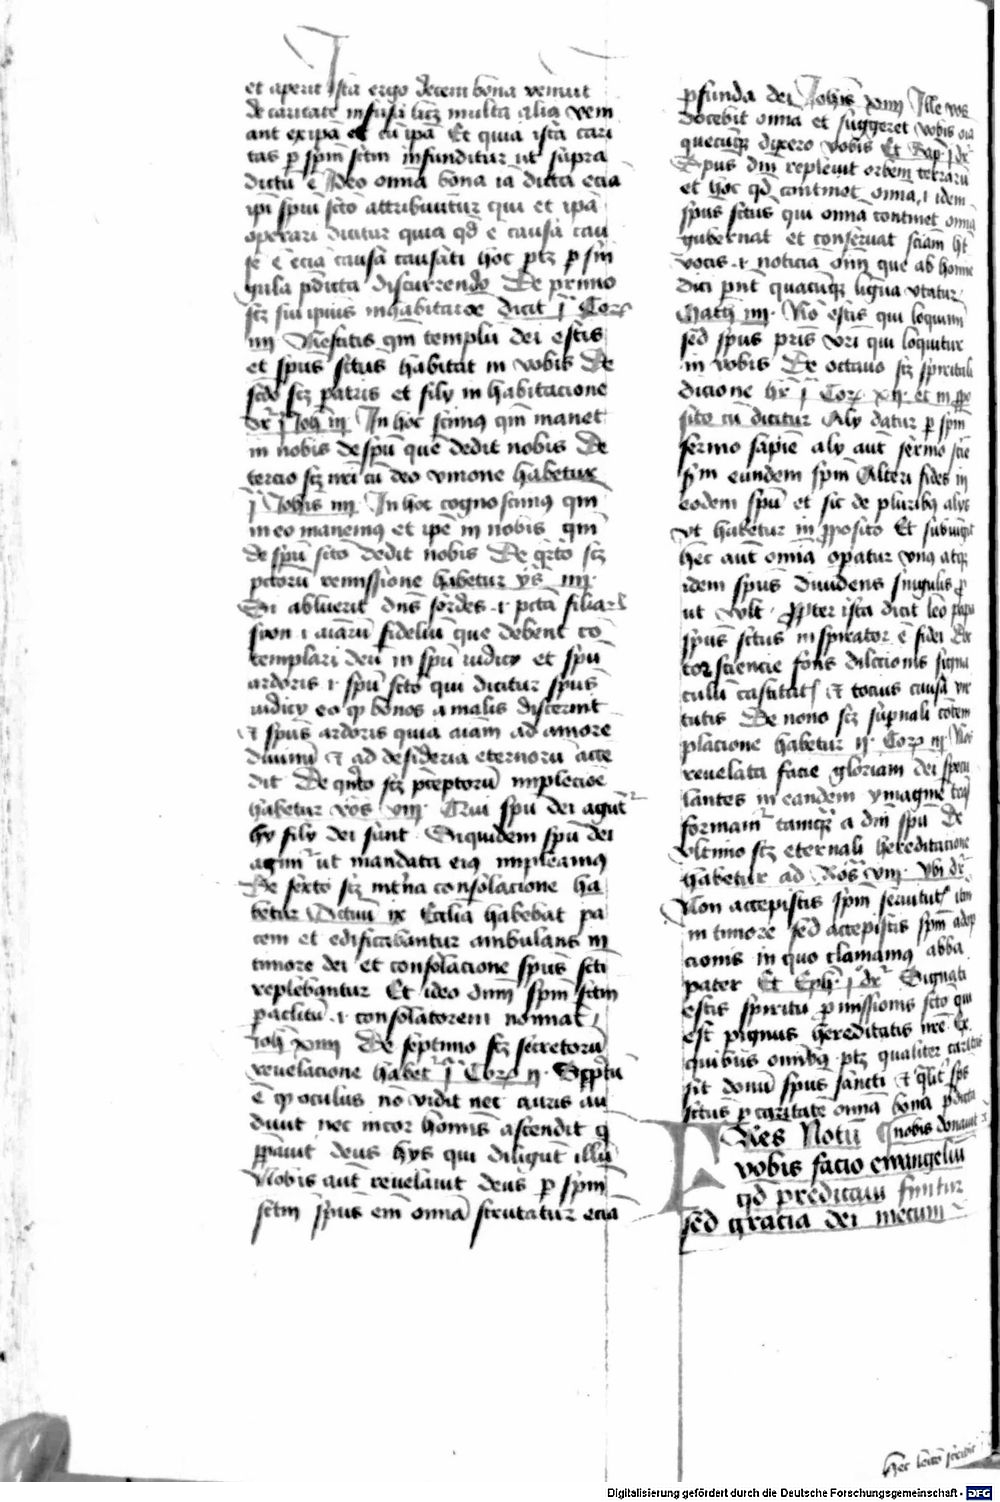 et aperit Ista ergo decem bona veniūt
de caritate infusa licꝫ multa alia veni
ant ex ipa et cū ipa Et quia ista cari
tas ꝑ spm̄ sctm̄ infunditur ut supra
dictū ē Ideo om̄ia bona ia dicta ecia
ipi spui scto attribuūtur qui et ipa
operari dicitur quia qd̄ ē causa cau
se ē ecia causa causati hoc ptꝫ ꝑ sin
gula p̄dicta discurrendo De primo
scꝫ sui ipius inhabitacōe dicit j Cor
iij Nescitis qm̄ templū dei estis
et spūs sctūs habitat in vobis De
scd̄o scꝫ patris et filij inhabitacione
dr̄ j Joh iij In hoc scimꝰ qm̄ manet
in nobis de spū quē dedit nobis De
tercio scꝫ nr̄i cū deo vnione habetur
j Johis iiij In hoc cognoscimꝰ qm̄
in eo manemꝰ et ipē in nobis qm̄
de spū scto dedit nobis De q̄rto scꝫ
pctorū remissione habetur ys iiij
Si abluerit dn̄s sordes ⁊ pctā filiarū
syon ⁊ aīarū fideliū que debent cō
templari deū in spū iudicij et spū
ardoris ⁊ spū scto qui dicitur spūs
iudicij eo ꝙ bonos a malis discernit
Et spūs ardoris quia aīam ad amore
diuinū Et ad desideria eternorū acce
dit De qn̄to scꝫ p̄ceptorū implecōe
habetur Ros viij Qui spū dei agūt᷑
hij filij dei sunt Siquidem spū dei
agim᷑ ut mandata eiꝰ impleamꝰ
De sexto scꝫ int̄na consolacione ha
betur Actuū ix Ecclia habebat pa
cem et edificabantur ambulans in
timore dei et consolacione spūs scti
replebantur Et ideo dn̄s spm̄ sctm̄
paclitū ⁊ consolatorem nominat
Joh xiiij De septimo scꝫ secretorū
reuelacione habet᷑ j Cor ij Scptū
ē ꝙ oculus nō vidit nec auris au
diuit nec in cor hōmis ascendit q̄
p̄parauit deus hijs qui diligūt illū
Nobis aūt reuelauit deus ꝑ spm̄
sctm̄ spūs em̄ om̄ia scrutatur ecia
ꝓfunda dei Johis xiiij Ille vos
docebit om̄ia et suggeret vobis om̄ia
quecūqꝫ dixero vobis Et Sap j dr̄
Spūs dm̄ repleuit orbem terrarū
et hoc qd̄ continet om̄ia ⁊ idem
spūs sctūs qui om̄ia continet om̄ia
gubernat et conseruat sciam ht̄
vocis ⁊ noticiā om̄m que ab homie
dici pn̄t quacūqꝫ ligua vtatur
Math iiij Nō estis qui loquimī
sed spūs pris vr̄i qui loquitur
in vobis De octauo scꝫ spirituali
dicione hr̄ j Cor xij et in ꝓpo
sito cū dicitur Alij datur ꝑ spm̄
sermo sapie alij aut sermo scie
scd̄m eundem spm̄ Alteri fides in
eodem spū et sic de pluribꝰ alijs
vt habetur in ꝓposito Et subiūgit
hec aut om̄ia opatur vnꝰ atqꝫ
idem spūs diuidens singulis ꝓ
ut vult Propter ista dicit leo papa
spūs sctūs inspirator ē fidei Doc
tor sciencie fons dilectionis signa
culū castitatis Et tocius causa vir
tutis De nono scꝫ supnali cotem
placione habetur ij Cor iij Nos
reuelata facie gloriam dei specu
lantes in eandem ymagine trās
formam᷑ tamqꝫ a dm̄ spū De
vltimo scꝫ eternali hereditacione
habetur ad Ros viij vbi dr̄
Non accepistis spm̄ seruitutis itm̄
in timore sed accepistis spm̄ adop
cionis in quo clamamꝰ abba
pater Et Eph j dr̄ Signati
estis spiritu ꝓmissionis scto qui
est pignus hereditatis nr̄e Ex
quibus om̄ibꝰ ptꝫ qualiter caritas
sit donū spūs sancti Et qlit᷑ spūs
sctūs ꝑ caritatē om̄ia bona p̄dicta
nobis donauit
Fres Notū
vobis facio ewangeliū
qd̄ predicaui finitur
sed gracia dei mecum
hec lectō scribit᷑
Digitalisierung gefördert durch die Deutsche Forschungsgemeinschaft - DFG